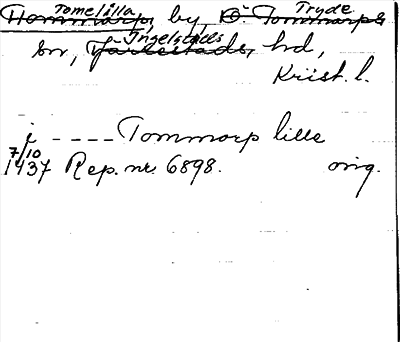 Tomelilla Tryde
Tommarp, by, Ö Tommarps
Ingelstads
sn, Järlestads, hd,
Krist. l.
i ---- Tommorp lille
7/10
1437 Rep. nr. 6898. orig.